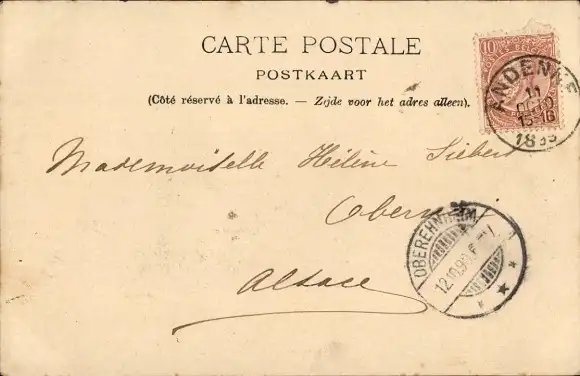 CARTE POSTALE
POSTKAART
(Côté réservé à l'adresse. — Zijde voor het adres alleen).
10
ANDENNE
11
15-16
1899
Mademoiselle Hélène Siebert
Obernai
Alsace
OBEREHNHEIM
12.10.99.